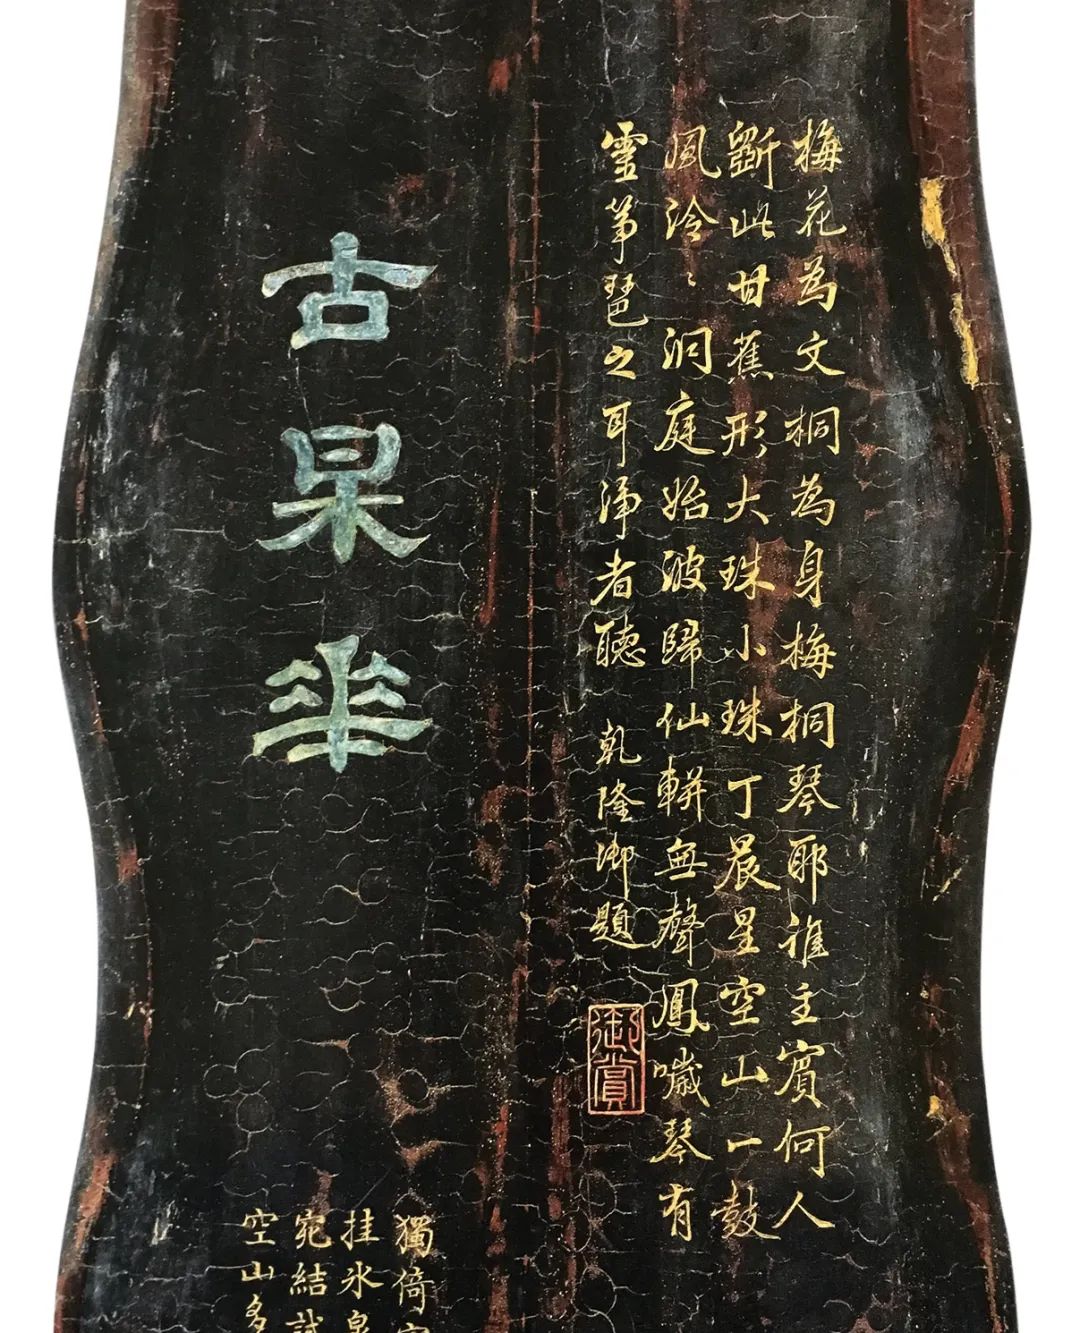 梅花為文桐為身梅桐琴耶誰主賓何人
斵此甘蕉形大珠小珠丁晨星空山一鼓
風泠〻洞庭始波歸仙軿無聲鳳噦琴有
靈箏琶之耳淨者聽 乾隆御題
御賞
古杲華
獨倚
挂氷泉
宛結試
空山多